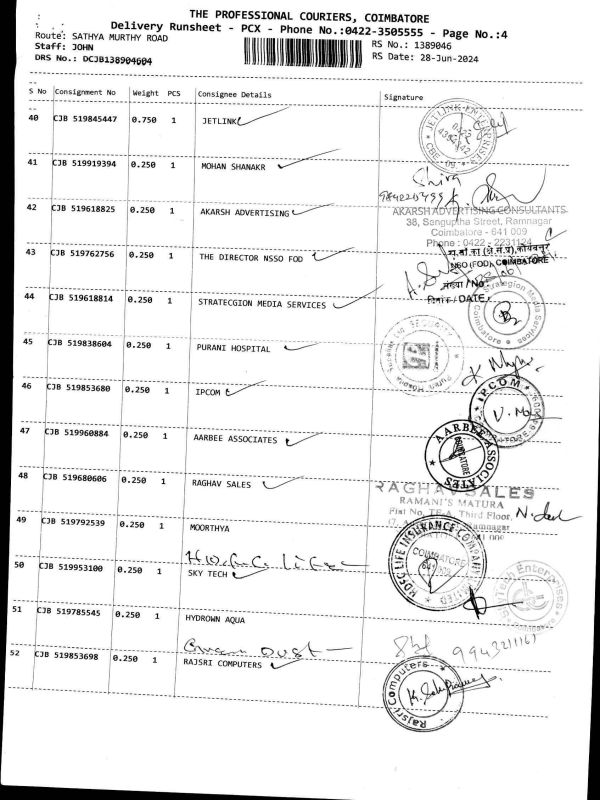 THE PROFESSIONAL COURIERS, COIMBATORE
Delivery Runsheet - PCX - Phone No.:0422-3505555 - Page No.:4
Route: SATHYA MURTHY ROAD
Staff: JOHN
DRS No.: DCJB138904604
RS No.: 1389046
RS Date: 28-Jun-2024
S No Consignment No Weight PCS Consignee Details Signature
40 CJB 519845447 0.750 1 JETLINK
JETLINK ENTERPRISES
41 CJB 519919394 0.250 1 MOHAN SHANAKR
Shira
42 CJB 519618825 0.250 1 AKARSH ADVERTISING
AKARSH ADVERTISING CONSULTANTS
38, Sanguptha Street, Ramnagar
Coimbatore - 641 009
Phone : 0422 - 2231124
43 CJB 519762756 0.250 1 THE DIRECTOR NSSO FOD
NSO (FOD), COIMBATORE
संख्या / No.
दिनांक / DATE
44 CJB 519618814 0.250 1 STRATECGION MEDIA SERVICES
Strategion Media Services
Coimbatore
45 CJB 519838604 0.250 1 PURANI HOSPITAL
46 CJB 519853680 0.250 1 IPCOM
IPCOM
47 CJB 519960884 0.250 1 AARBEE ASSOCIATES
AARBEE ASSOCIATES
COIMBATORE
48 CJB 519680606 0.250 1 RAGHAV SALES
RAGHAV SALES
RAMANI'S MATURA
Third Floor,
Ramnagar
49 CJB 519792539 0.250 1 MOORTHYA
HDFC LIFE INSURANCE COMPANY LIMITED
COIMBATORE
50 CJB 519953100 0.250 1 SKY TECH
Enterprises
51 CJB 519785545 0.250 1 HYDROWN AQUA
9943211161
52 CJB 519853698 0.250 1 RAJSRI COMPUTERS
Rajsri Computers